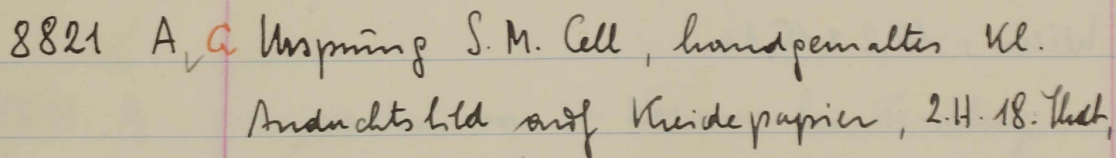 8821 A, G Ursprung S. M. Cell, handgemaltes Kl.
Andachtsbild auf Kreidepapier, 2.H. 18. Jhdt,